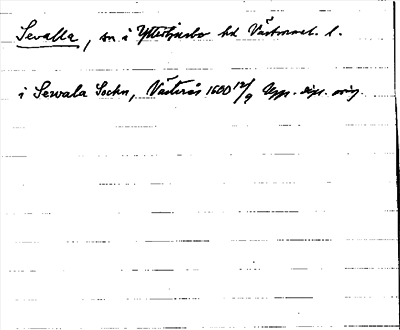 Sevalla, sn. i Yttertjurbo hd Västmanl. l.
i Sewala Sochn, Västerås 1600 12/9 Upps. dipl. orig.